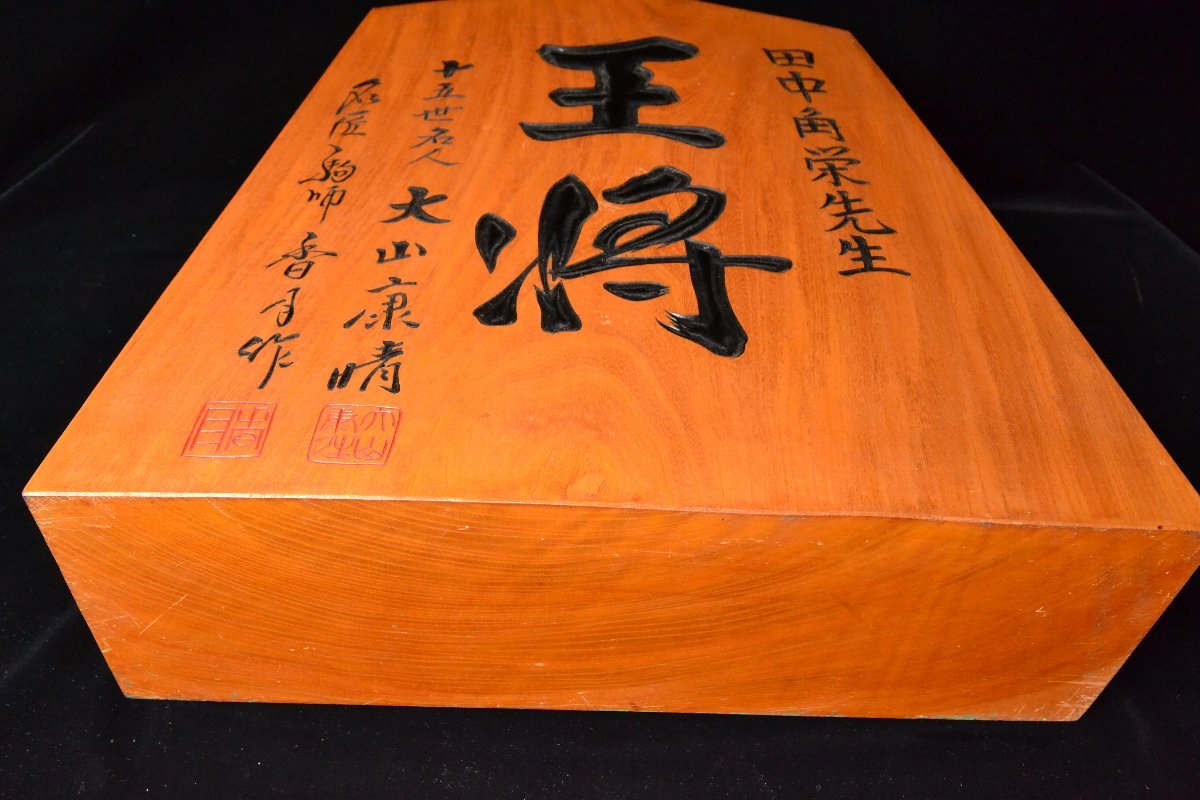 田中角栄先生
王将
十五世名人 大山康晴
名匠駒師 香月作